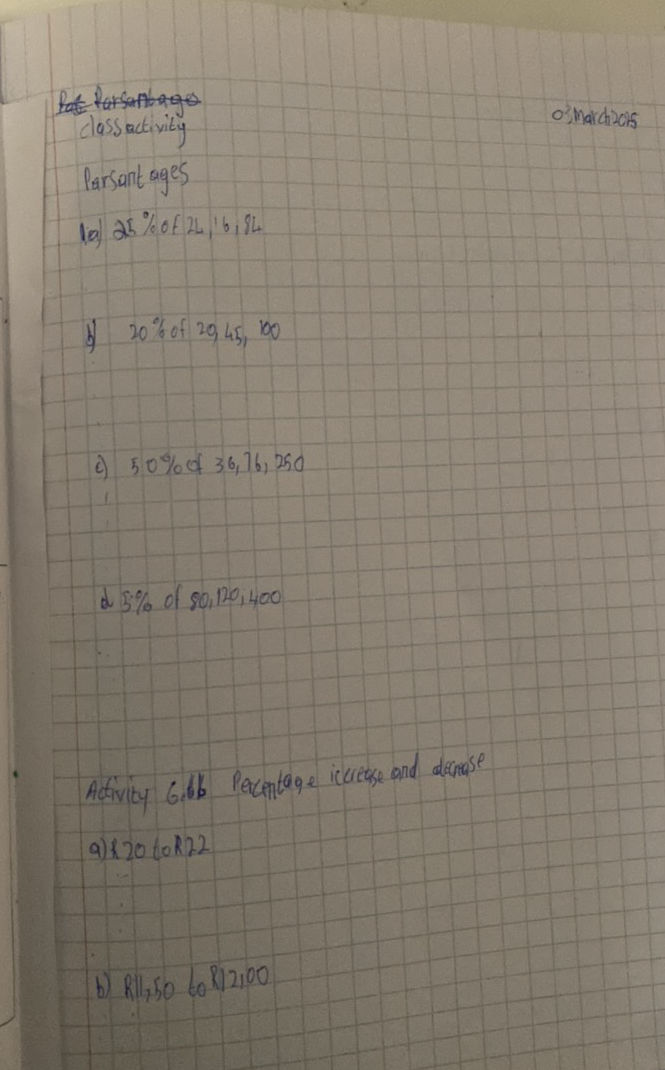 Parsantage
class activity
03 March 2025
Parsantages
1a) 25% of 24, 16, 84
b) 20% of 20, 45, 100
c) 50% of 36, 76, 250
d 5% of 80, 120, 400
Activity 6.6b Percentage icrease and decrease
a) R20 to R22
b) R11,50 to R12,00